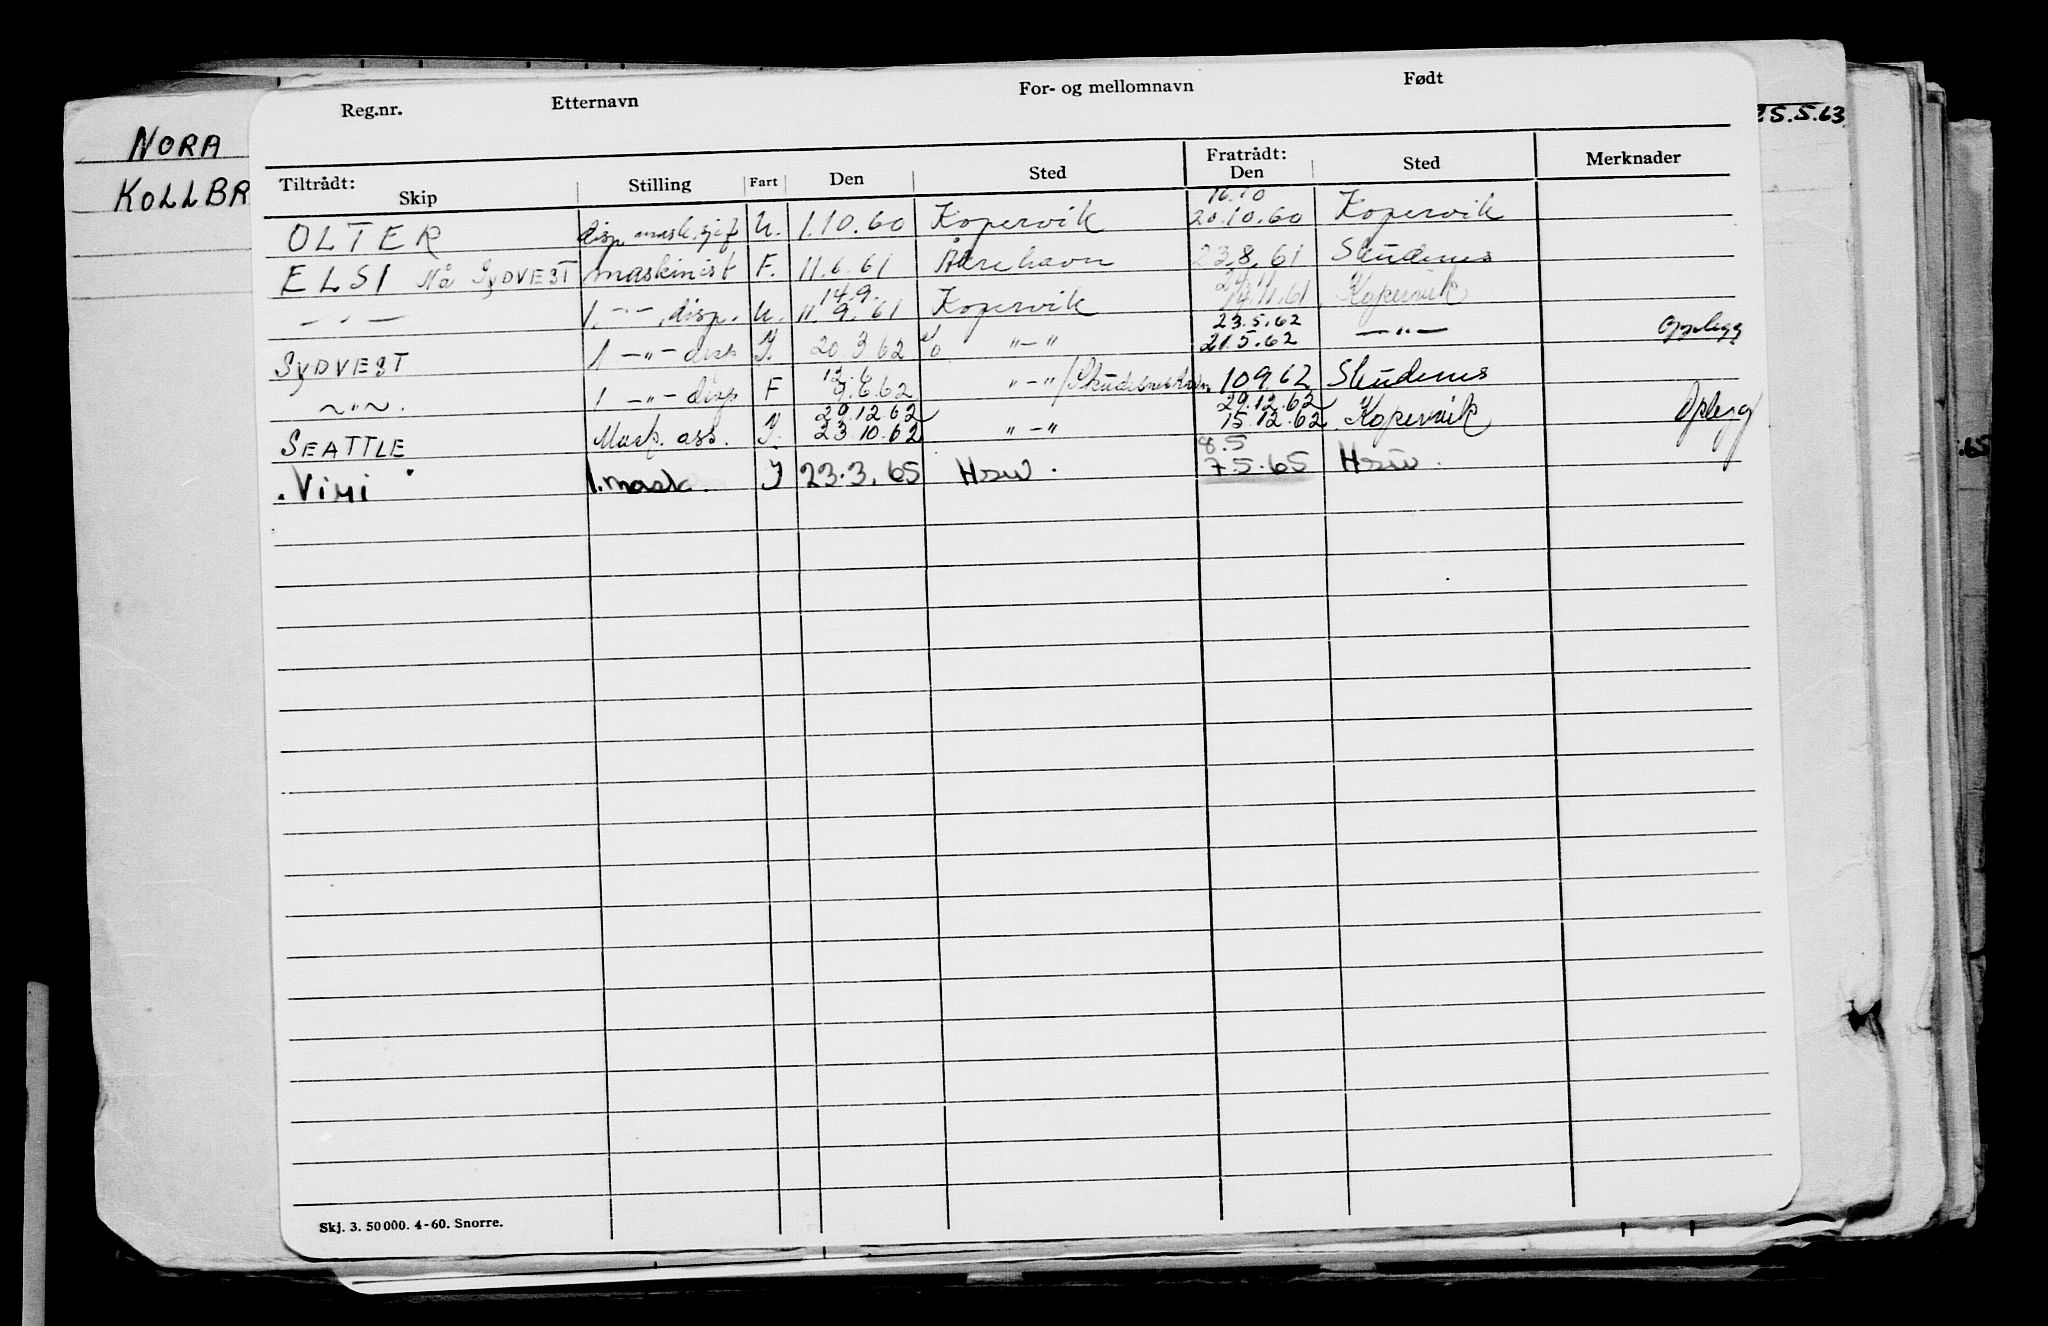 Reg.nr. Etternavn For- og mellomnavn Født
Tiltrådt: Skip Stilling Fart Den Sted Fratrådt: Den Sted Merknader
NORA
KOLLBR
25.5.63
16.10
OLTER disp. mask.sjef U. 1.10.60 Kopervik 20.10.60 Kopervik
ELSI Nå SYDVEST maskinist F. 11.6.61 Åkrehavn 23.8.61 Skudenes
14.9. 24.11
— " — 1. — " —, disp. U. 11.9.61 Kopervik 14.11.61 Kopervik
23.5.62
SYDVEST 1 — " — disp J. 20.3.62 — " — 21.5.62 — " — Opplegg
12.6
— " —. 1 — " — disp F 9.6.62 — " — / Skudeneshavn. 10 9 62 Skudenes
29.12.62 29.12.62
SEATTLE Mask. ass. J. 23.10.62 — " — 15.12.62 Kopervik Oplegg
8.5
. Viri 1. mask. J 23.3.65 Hsw. 7.5.65 Hsw.
.65
Skj. 3. 50 000. 4-60. Snorre.